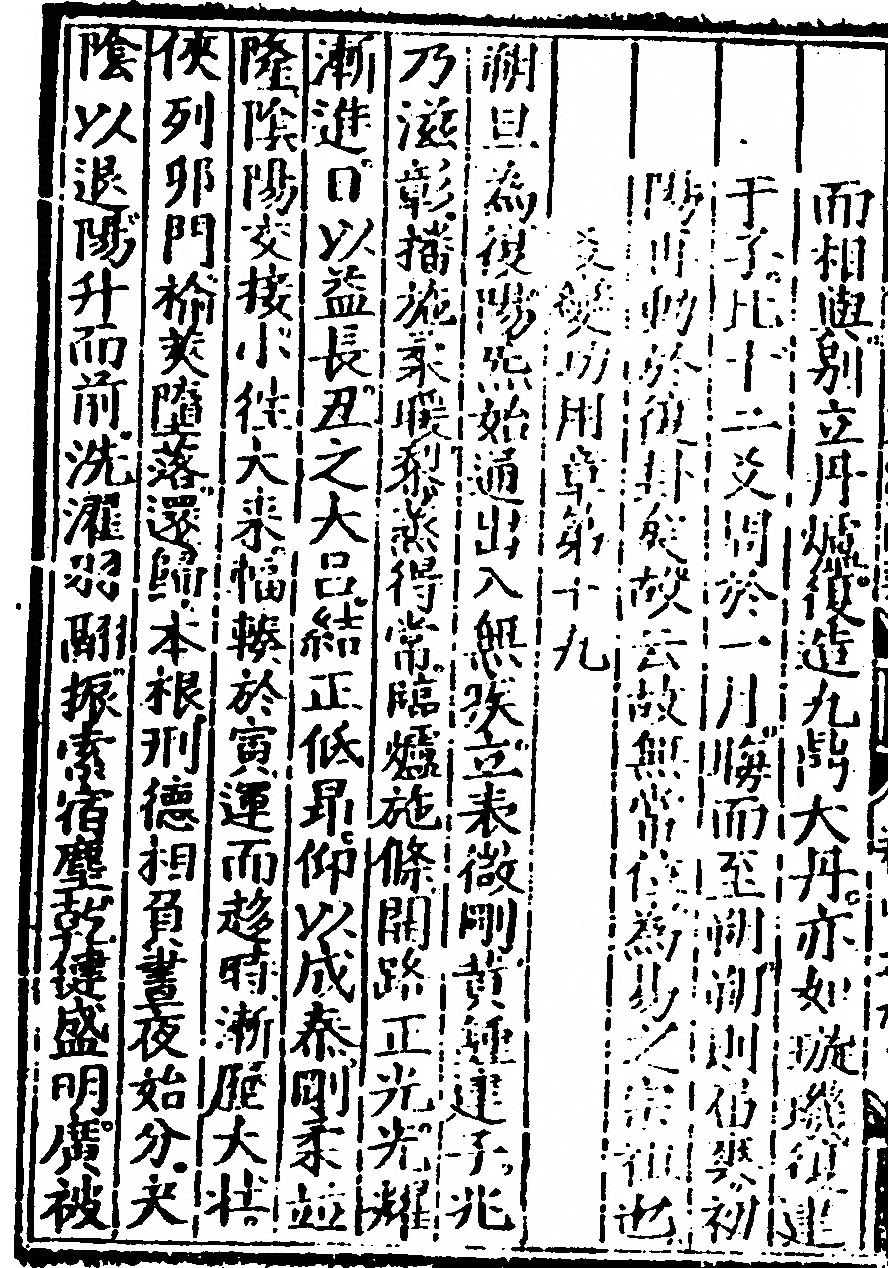 而相與別立丹爐復造九鼎大丹亦如璇璣復建
于子比十二爻周於一月晦而至朔朔則伯爽初
陽再動於復卦矣故云故無常位為易之宗祖也
爻變功用章第十九
朔旦為復陽炁始通出入無疾立表微剛黃鍾建子兆
乃滋彰播施柔暖黎蒸得常臨爐施條開路正光光耀
漸進日以益長丑之大呂結正低昂仰以成泰剛柔並
隆陰陽交接小往大來輻輳於寅運而趍時漸歷大壯
俠列卯門榆莢墮落還歸本根刑德相負晝夜始分夬
陰以退陽升而前洗濯羽翮振索宿塵乾健盛明廣被